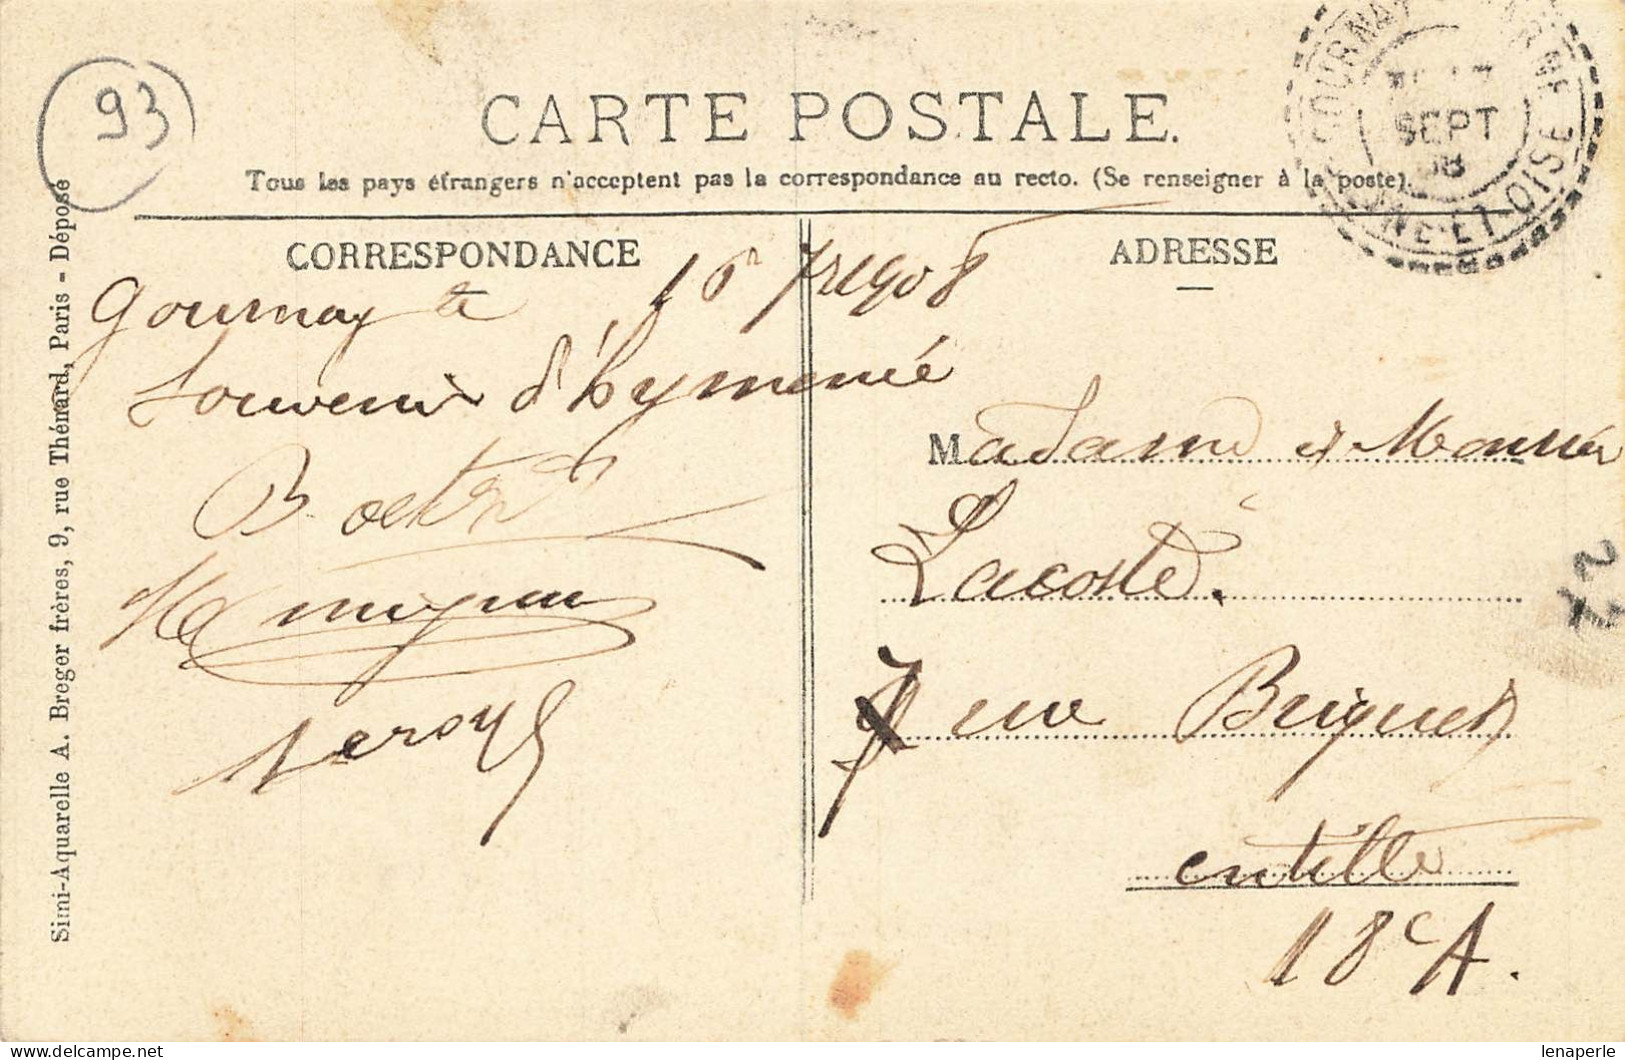 93
CARTE POSTALE.
Tous les pays étrangers n'acceptent pas la correspondance au recto. (Se renseigner à la poste).
SEPT
08
ET-OISE
CORRESPONDANCE
Gournay le
Souvenir d'hymenée
Leroy
ADRESSE
Madame et Monsieur
Lacoste.
7 rue Briquet
18e A.
22
Simi-Aquarelle A. Breger frères, 9, rue Thénard, Paris - Déposé
lenaperle